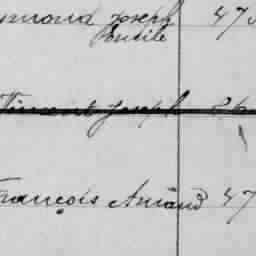 ymond Joseph 47
Emile
Vincent Joseph
François Amand 47